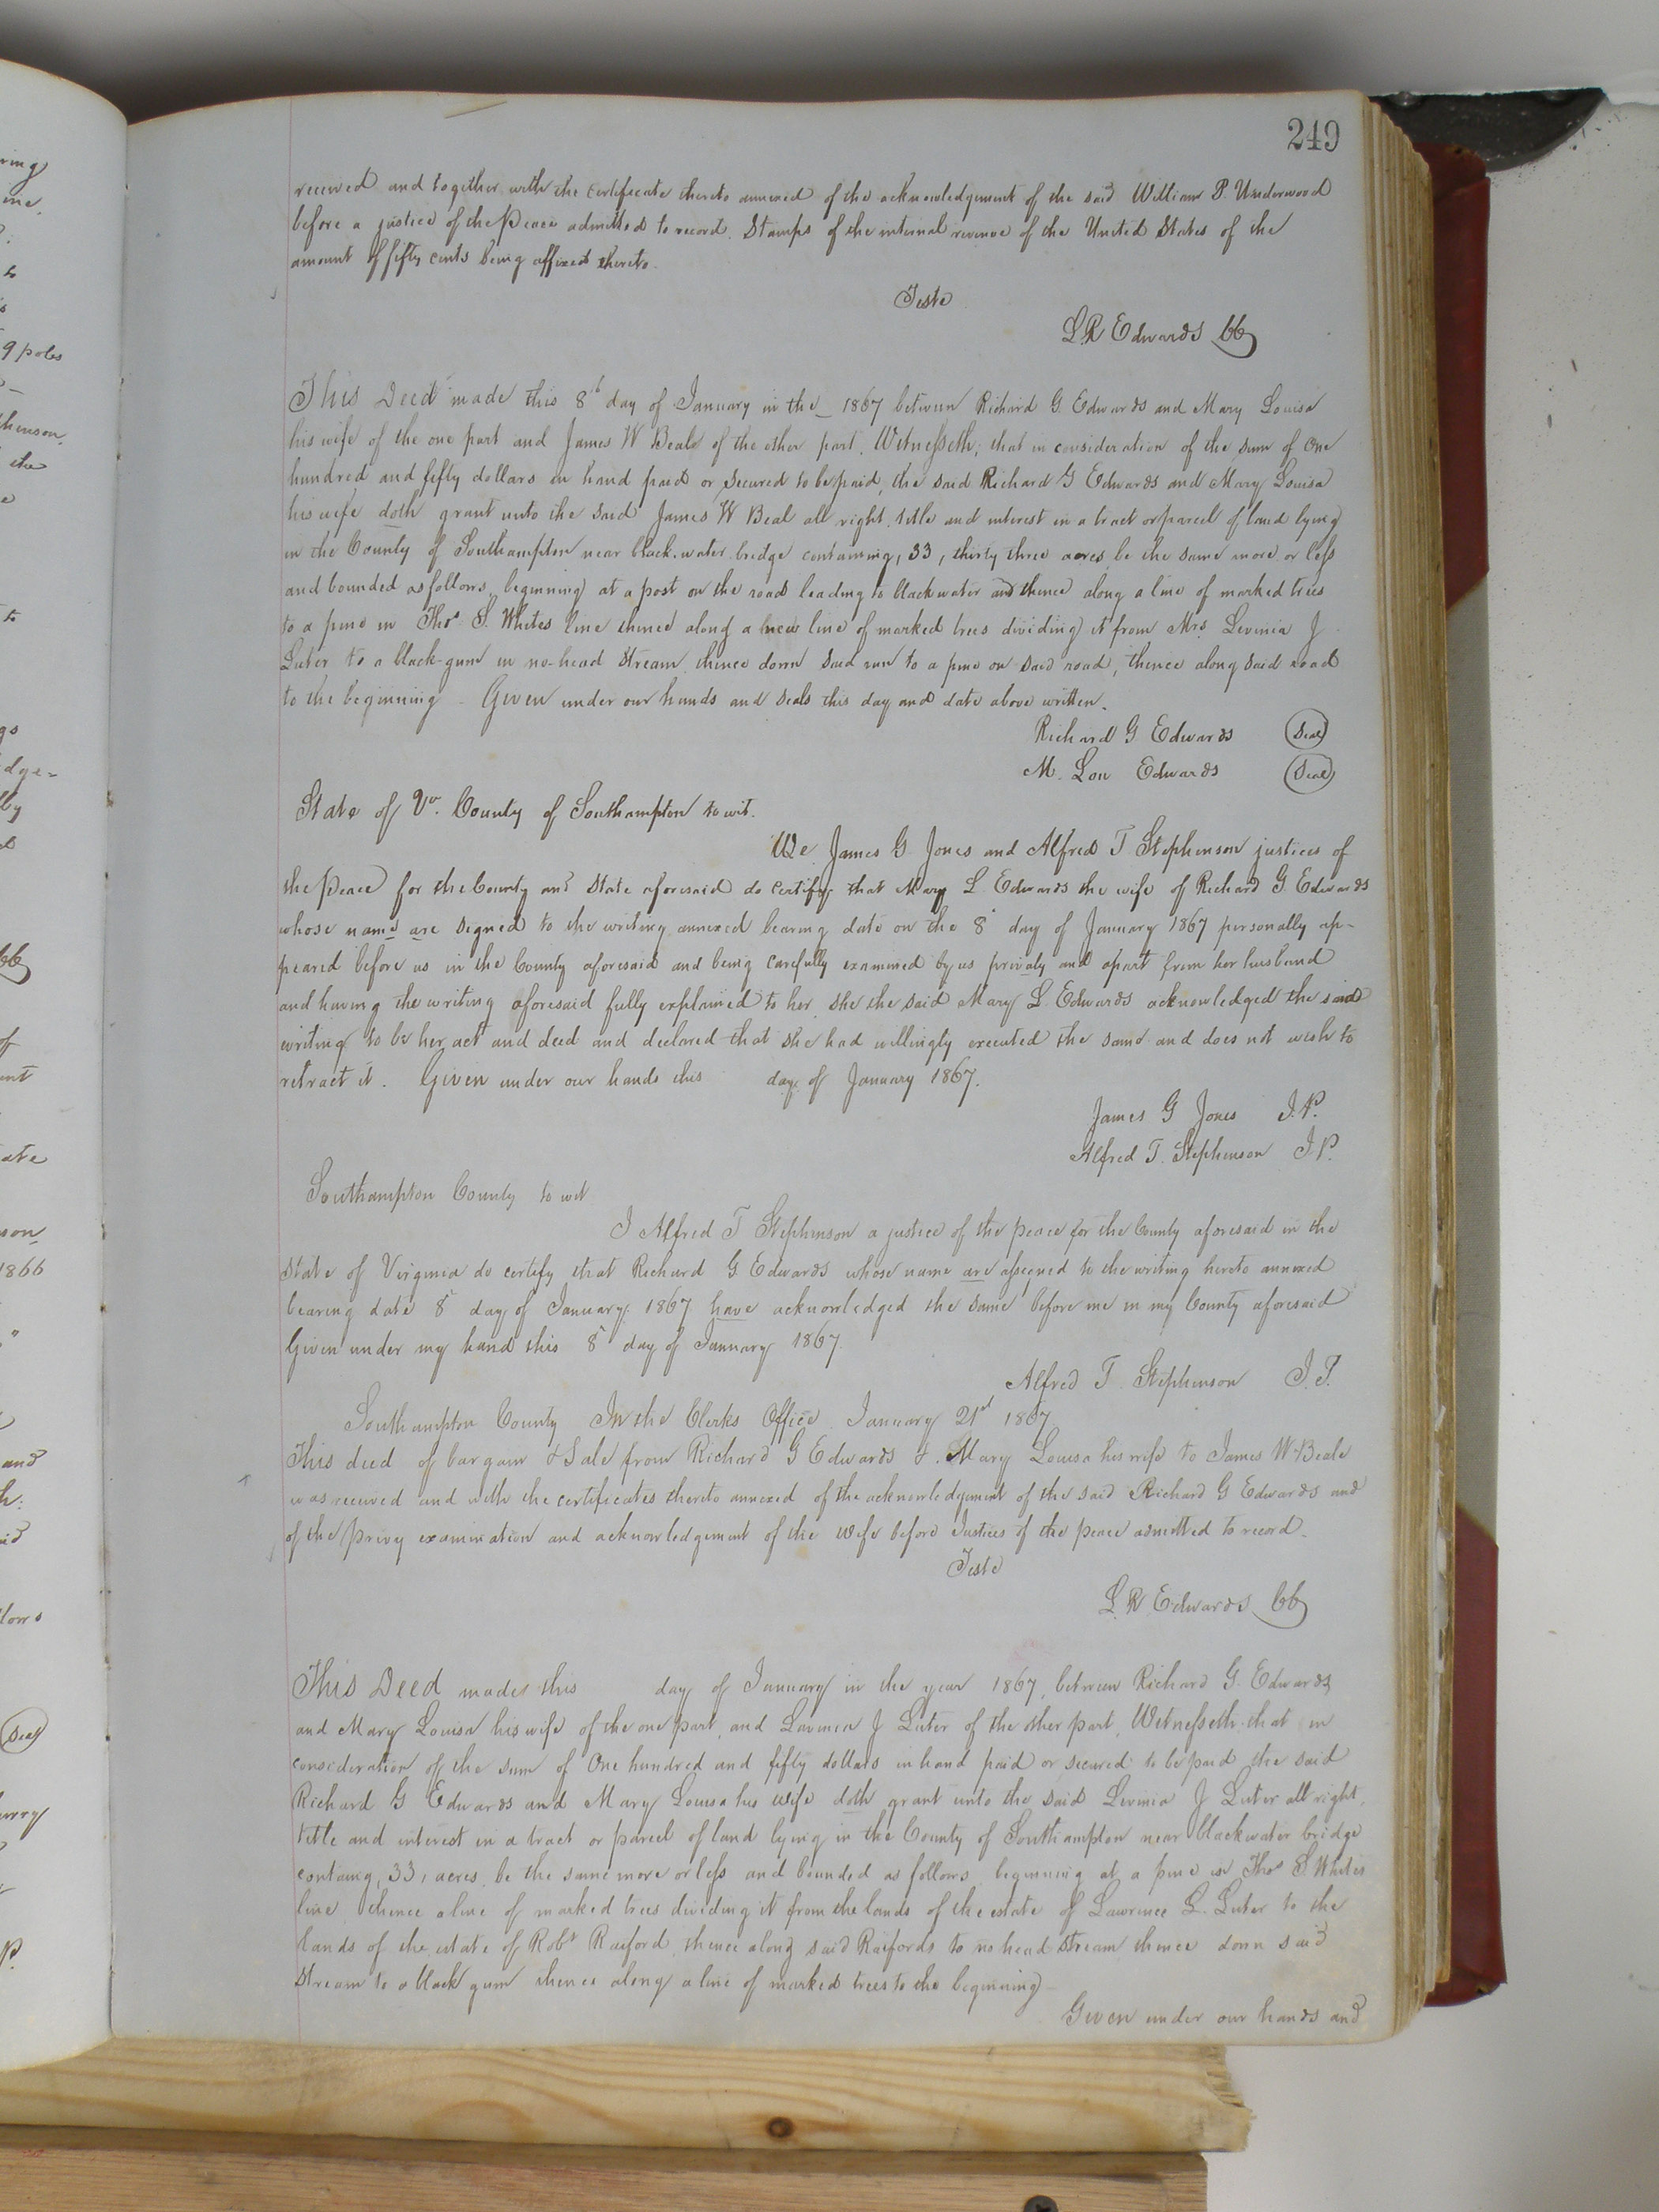 249
received and together with the certificate thereto annexed of the acknowledgement of the said William P. Underwood
before a justice of the Peace admitted to record. Stamps of the internal revenue of the United States of the
amount of fifty cents being affixed thereto.
Teste
L R Edwards CC
This Deed made this 8th day of January in the 1867 between Richard G. Edwards and Mary Louisa
his wife of the one part and James W Beale of the other part. Witnesseth; that in consideration of the sum of One
hundred and fifty dollars in hand paid or secured to be paid, the said Richard G Edwards and Mary Louisa
his wife doth grant unto the said James W Beal all right, title and interest in a tract or parcel of land lying
in the County of Southampton near black-water bridge containing, 33, thirty three acres be the same more or less
and bounded as follows, beginning at a post on the road leading to blackwater and thence along a line of marked trees
to a pine in Thos. S. Whites line thence along a new line of marked trees dividing it from Mrs. Levinia J
Luter to a black-gum in no-head stream, thence down said run to a pine on said road, thence along said road
to the beginning - Given under our hands and seals this day and date above written.
Richard G Edwards Seal
M. Lou Edwards Seal
State of Va. County of Southampton to wit.
We James G Jones and Alfred T Stephenson justices of
the Peace for the County and State aforesaid do certify that Mary L. Edwards the wife of Richard G Edwards
whose name are signed to the writing annexed bearing date on the 8" day of January 1867 personally ap-
peared before us in the County aforesaid and being carefully examined by us privaly and apart from her husband
and having the writing aforesaid fully explained to her, she the said Mary L. Edwards acknowledged the said
writing to be her act and deed and declared that she had willingly executed the same and does not wish to
retract it. Given under our hands this day of January 1867.
James G Jones J.P.
Alfred T. Stephenson J.P.
Southampton County to wit
I Alfred T Stephenson a justice of the peace for the County aforesaid in the
State of Virginia do certify that Richard G. Edwards whose name are assigned to the writing hereto annexed
bearing date 8" day of January 1867 have acknowledged the same before me in my County aforesaid
Given under my hand this 8" day of January 1867.
Alfred T. Stephenson J.P.
Southampton County In the Clerks Office January 21st 1867
This deed of bargain & Sale from Richard G Edwards & Mary Louisa his wife to James W Beale
was received and with the certificates thereto annexed of the acknowledgement of the said Richard G Edwards and
of the privy examination and acknowledgement of the wife before Justices of the peace admitted to record.
Teste
L. R. Edwards CC
This Deed made this day of January in the year 1867, between Richard G. Edwards
and Mary Louisa his wife of the one part, and Lavinia J Luter of the other part, Witnesseth, that in
consideration of the sum of One hundred and fifty dollars in hand paid or secured to be paid the said
Richard G Edwards and Mary Louisa his wife doth grant unto the said Levinia J Luter all right,
title and interest in a tract or parcel of land lying in the County of Southampton near blackwater bridge
containg, 33, acres, be the same more or less and bounded as follows, beginning at a pine in Thos S. Whites
line, thence a line of marked trees dividing it from the lands of the estate of Lawrence L. Luter to the
lands of the estate of Robt Raiford, thence along said Raifords to no head stream thence down said
stream to a black gum thence along a line of marked trees to the beginning -
Given under our hands and